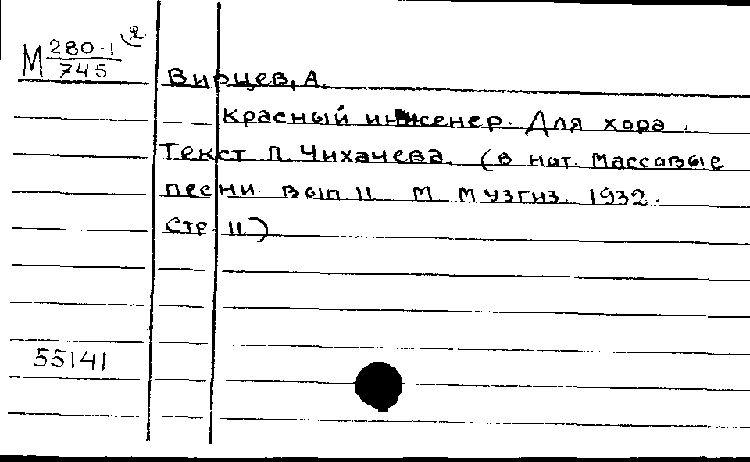 М 280-1 / 745
Вирцев, А.
Красный инженер. Для хора.
Текст П. Чихачева. (В нот. Массовые
песни. Вып. 11. М. Музгиз. 1932.
Стр. 11)
55141